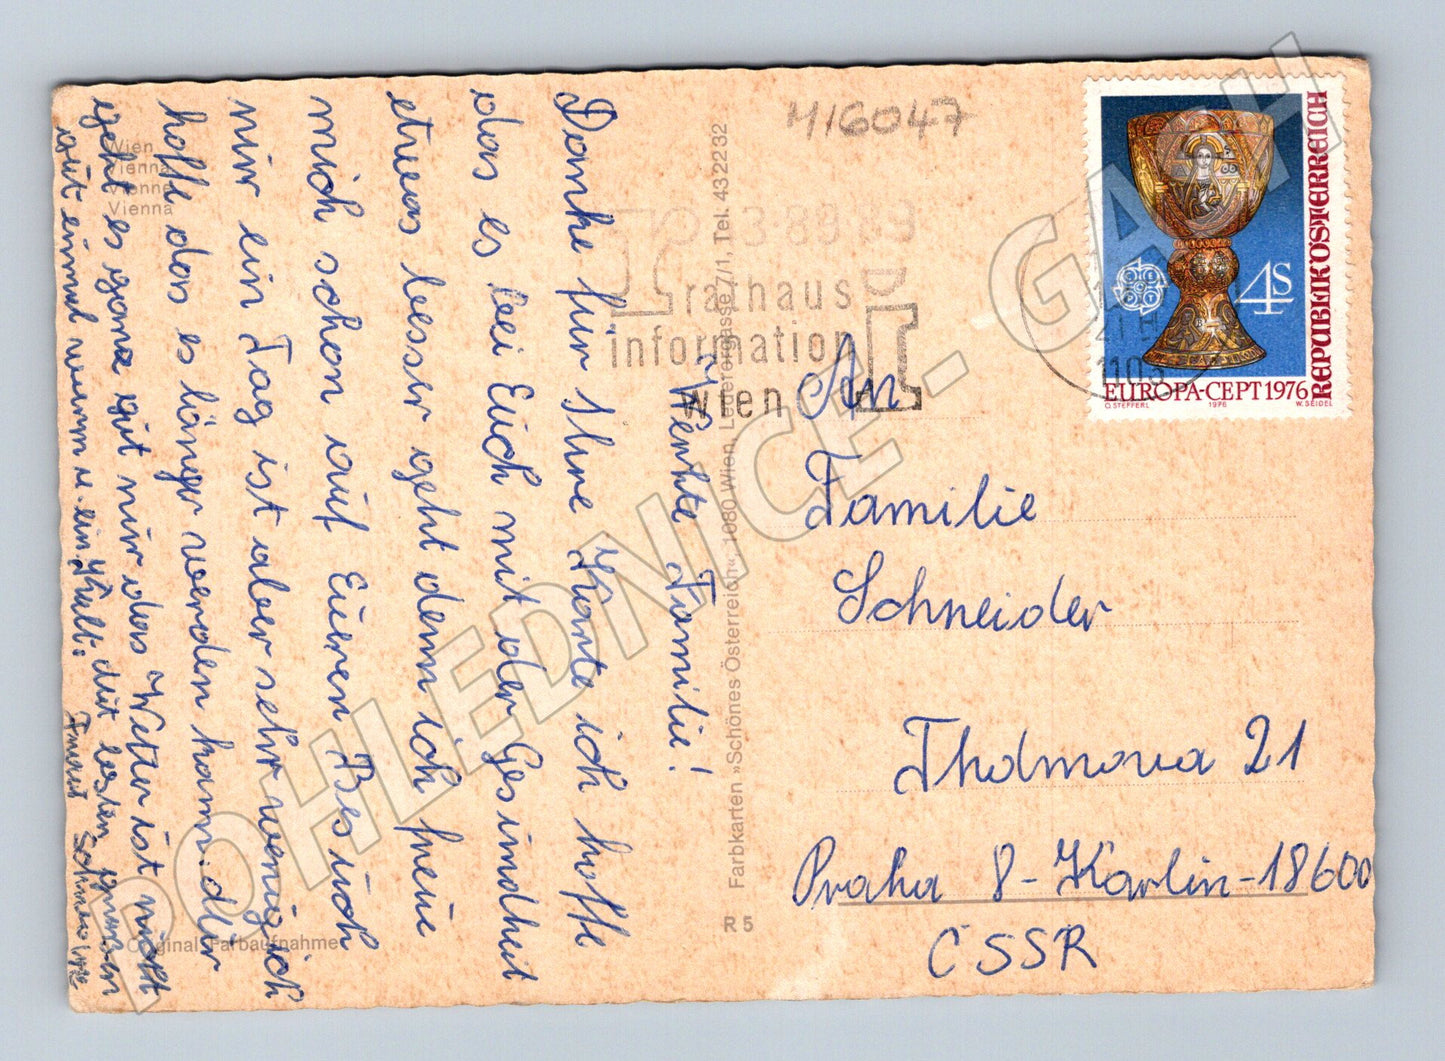 Wien
Vienna
Vienne
Vienna
Werte Familie!
Danke für Ihre Karte ich hoffe
das es bei Euch mit der Gesundheit
etwas besser geht denn ich freue
mich schon auf Euren Besuch
nur ein Tag ist aber sehr wenig ich
hoffe das es länger werden kann. dir
geht es ganz gut nur das Wetter ist nicht
gut einmal warm u. ein. Kalt: Mit besten
Original Farbaufnahme
R 5
Farbkarten »Schönes Österreich«, 1080 Wien, Lederergasse 7/1, Tel. 432232
M16047
rathaus
information
wien
1103
REPUBLIK ÖSTERREICH
4S
EUROPA-CEPT 1976
O. STEFFERL 1976 W. SEIDEL
An
Familie
Schneider
Thomova 21
Praha 8-Karlin-18600
CSSR
POHLEDNICE - GACH